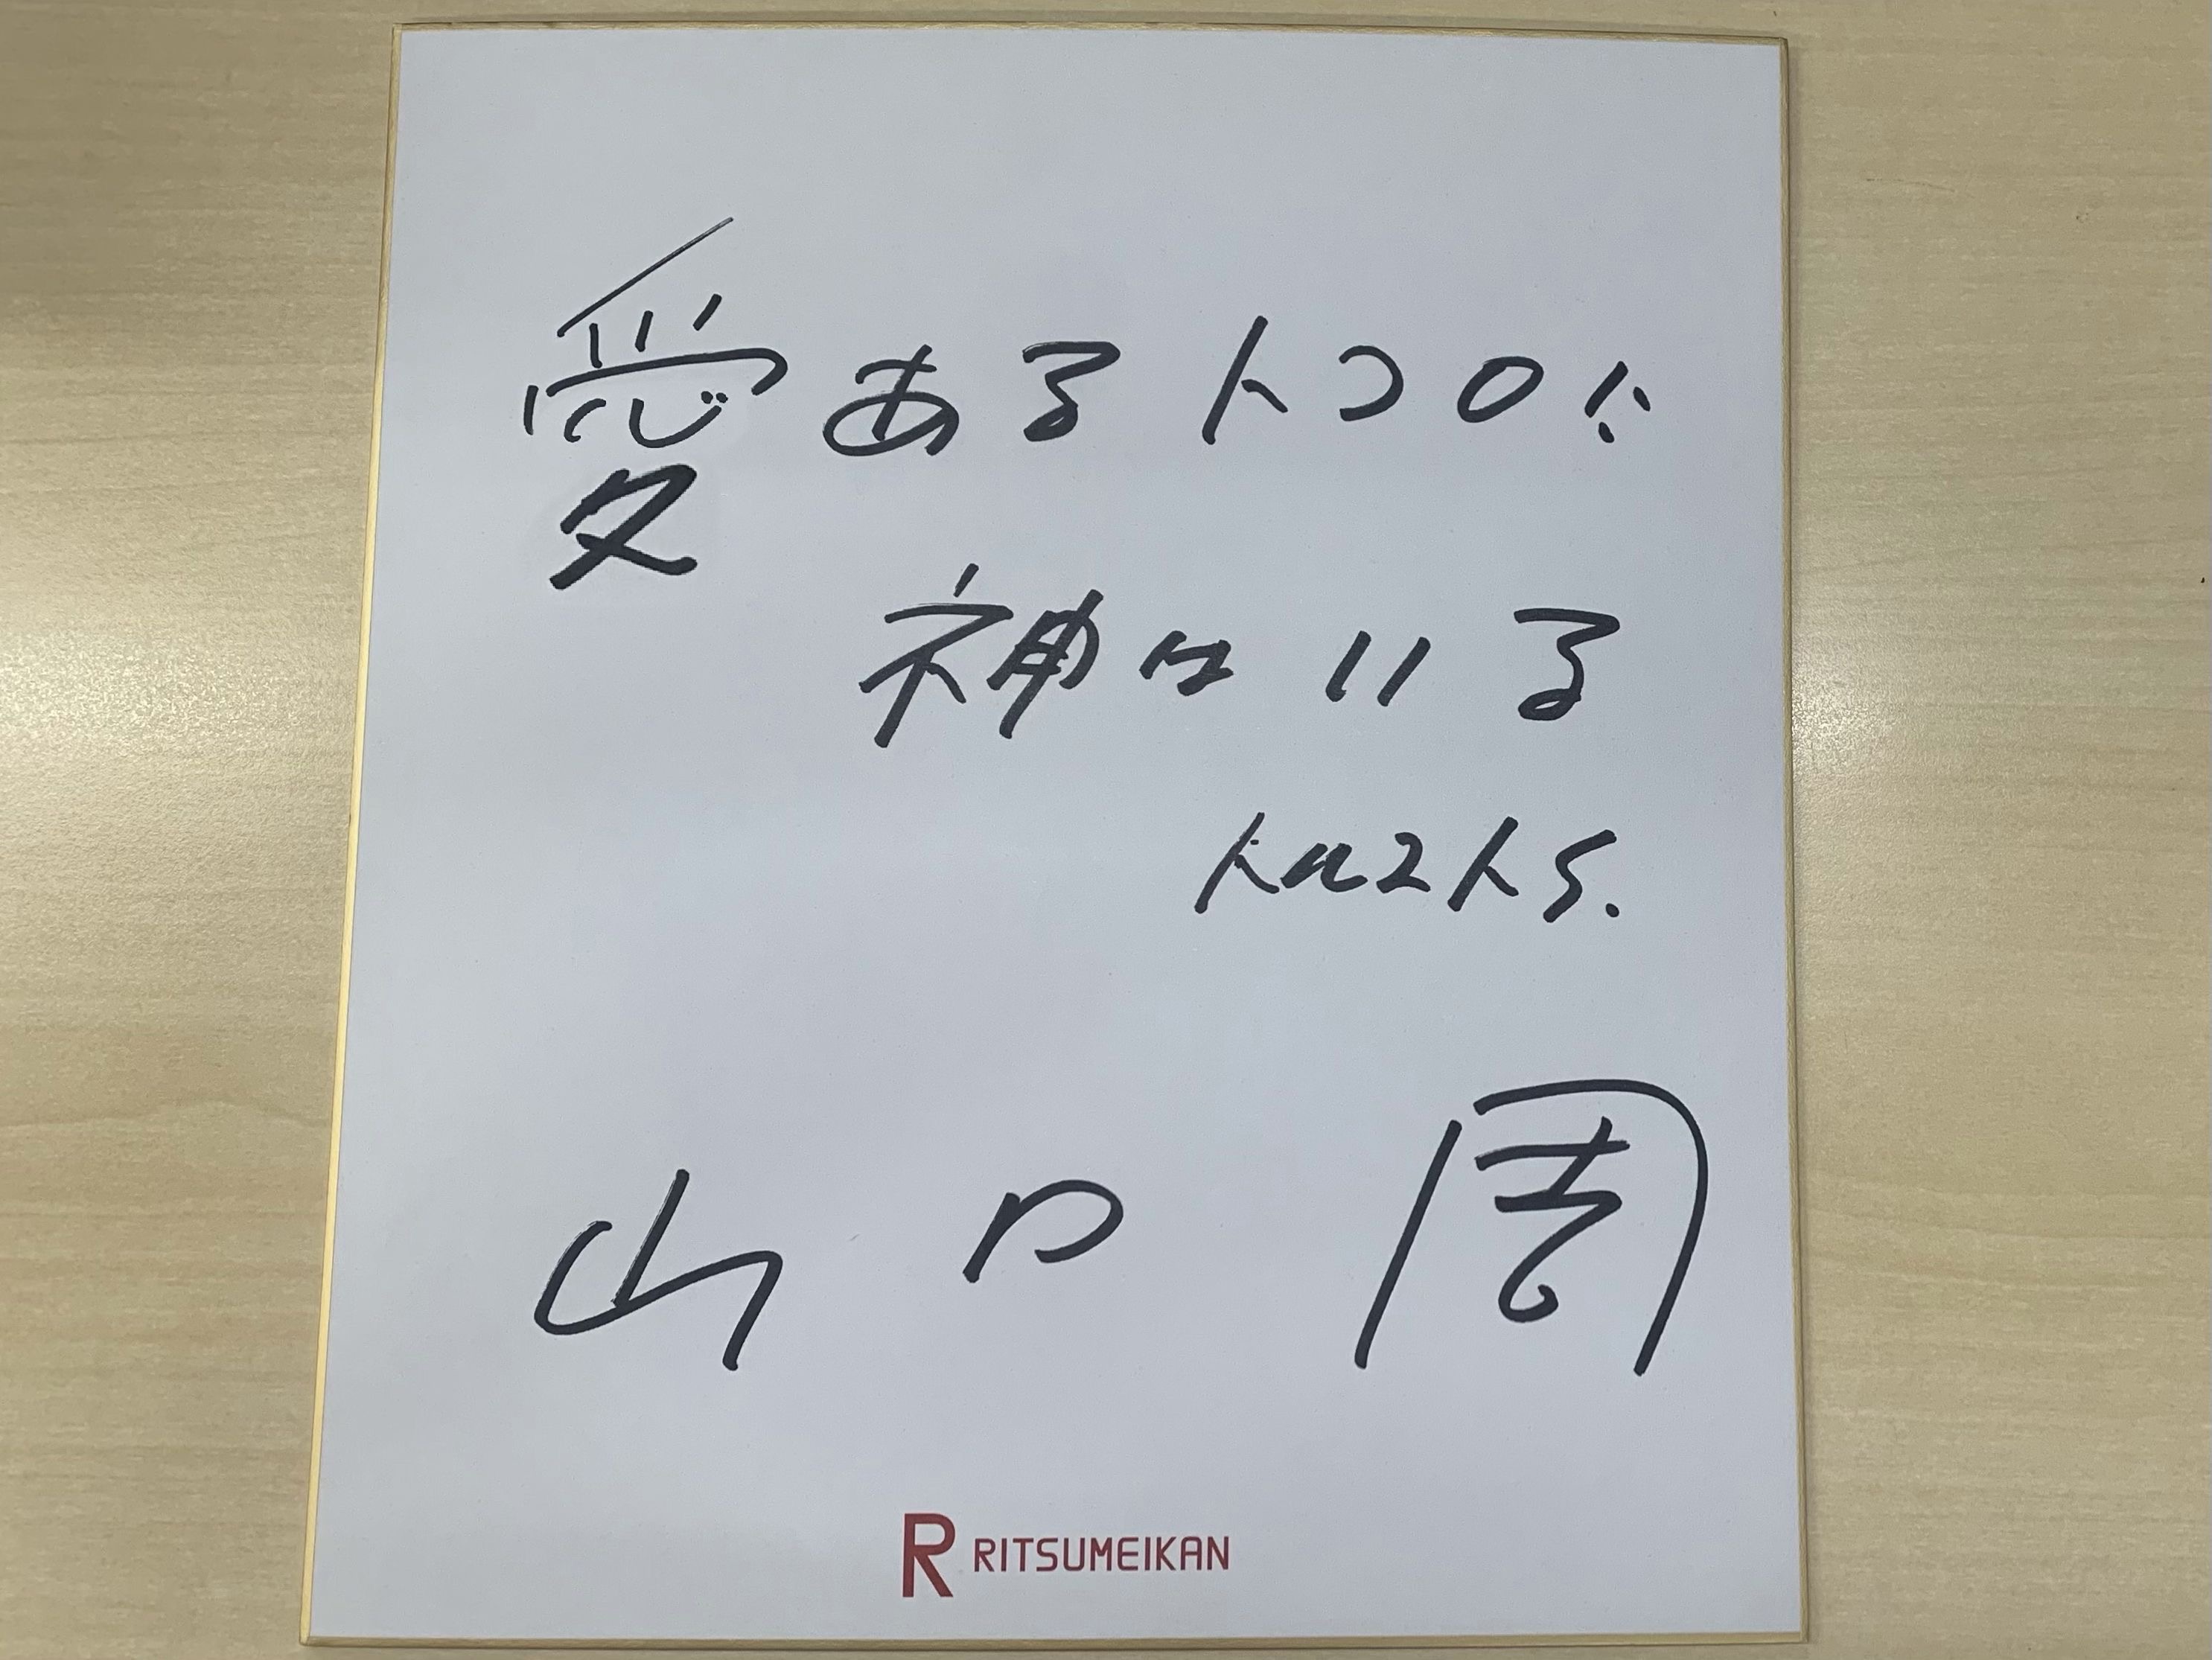 愛あるトコロに
神はいる
トルストイ.
山口 周
R RITSUMEIKAN